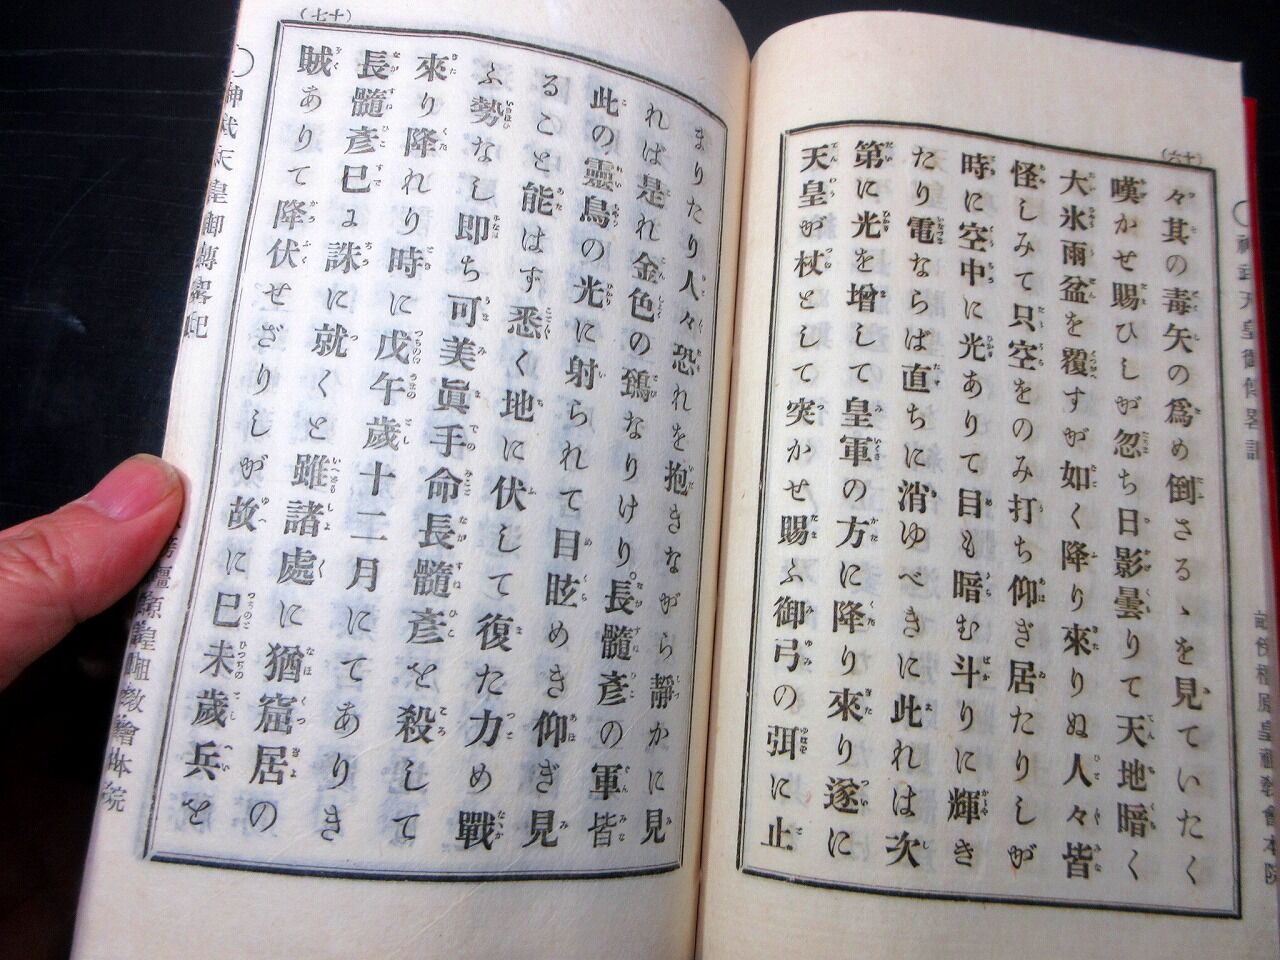 (六十)
々其の毒矢の爲め倒さるゝを見ていたく
嘆かせ賜ひしが忽ち日影曇りて天地暗く
大氷雨盆を覆すが如く降り來りぬ人々皆
怪しみて只空をのみ打ち仰ぎ居たりしが
時に空中に光ありて目も暗む斗りに輝き
たり電ならば直ちに消ゆべきに此れは次
第に光を增して皇軍の方に降り來り遂に
天皇が杖として突かせ賜ふ御弓の弭に止
神武天皇御傳畧記
(七十)
まりたり人々恐れを抱きながら靜かに見
れば是れ金色の鵄なりけり。長髓彥の軍皆
此の靈鳥の光に射られて目眩めき仰ぎ見
ること能はず悉く地に伏して復た力め戰
ふ勢なし卽ち可美眞手命長髓彥を殺して
來り降れり時に戊午歲十二月にてありき
長髓彥已に誅に就くと雖諸處に猶窟居の
賊ありて降伏せざりしが故に己未歲兵を
〇神武天皇御傳畧記
橿原皇祖敎會本院